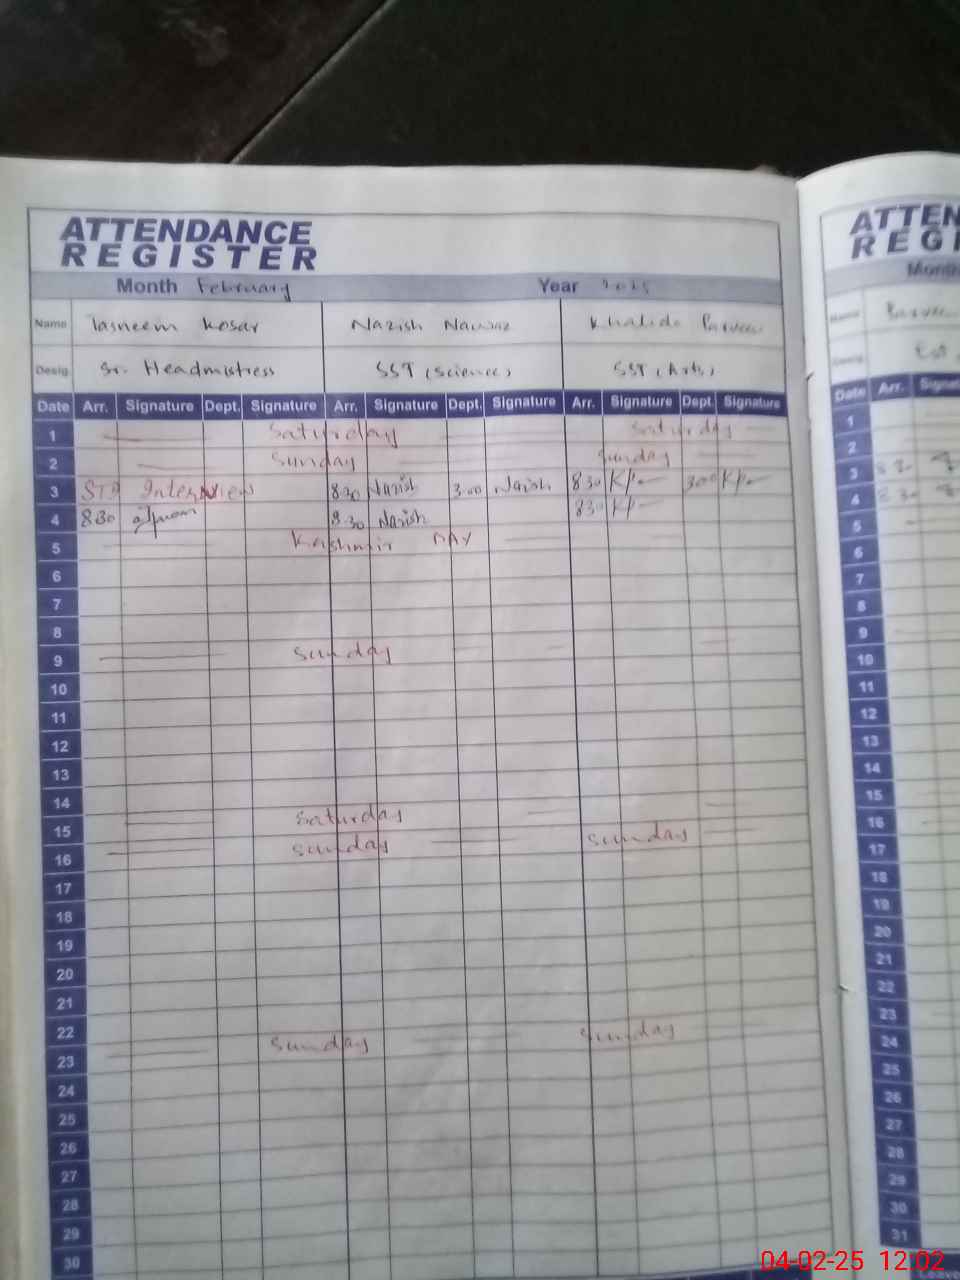 ATTENDANCE
REGISTER
Month February Year 2025
Name Tasneem Kosar Nazish Nawaz Khalida Parveen
Desig. Sr. Headmistress SST (Science) SST (Arts)
Date Arr. Signature Dept. Signature Arr. Signature Dept. Signature Arr. Signature Dept. Signature
1 Saturday Saturday
2 Sunday Sunday
3 Interview 8:30 Nazish 3:00 Nazish 830 KP 300 KP
4 830 8:30 Nazish 830 KP
5 Kashmir DAY
6
7
8
9 Sunday
10
11
12
13
14
15 Saturday
16 Sunday Sunday
17
18
19
20
21
22
23 Sunday Sunday
24
25
26
27
28
29
30
ATTEN
REGI
Month
Name
Desig.
Date Arr. Signatu
1
2
3
4
5
6
7
8
9
10
11
12
13
14
15
16
17
18
19
20
21
22
23
24
25
26
27
28
29
30
31
04-02-25 12:02